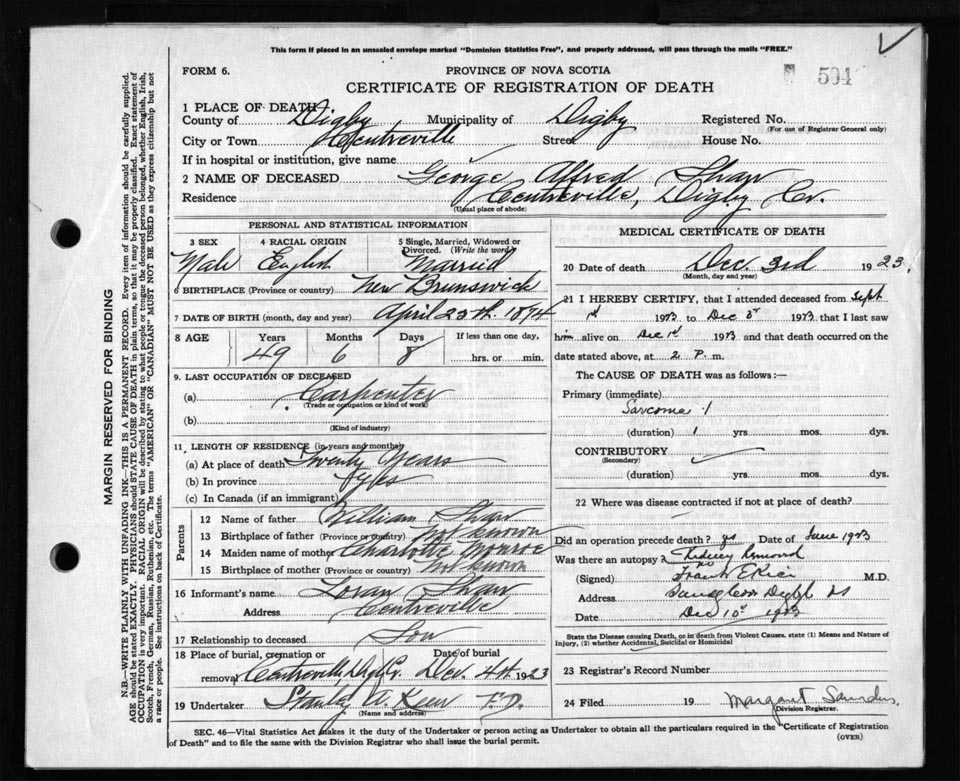 This form if placed in an unsealed envelope marked "Dominion Statistics Free", and properly addressed, will pass through the mails "FREE."
FORM 6.
PROVINCE OF NOVA SCOTIA
504
CERTIFICATE OF REGISTRATION OF DEATH
1 PLACE OF DEATH
County of Digby Municipality of Digby Registered No.
(For use of Registrar General only)
City or Town Centreville Street House No.
If in hospital or institution, give name
2 NAME OF DECEASED George Alfred Shaw
Residence Centreville, Digby Co.
(Usual place of abode)
PERSONAL AND STATISTICAL INFORMATION
3 SEX 4 RACIAL ORIGIN 5 Single, Married, Widowed or Divorced. (Write the word)
Male English Married
6 BIRTHPLACE (Province or country) New Brunswick
7 DATE OF BIRTH (month, day and year) April 25th. 1874
8 AGE Years Months Days If less than one day,
49 6 8 hrs. or min.
9. LAST OCCUPATION OF DECEASED
(a) Carpenter
(Trade or occupation or kind of work)
(b)
(Kind of industry)
11 LENGTH OF RESIDENCE (in years and months)
(a) At place of death Twenty Years
(b) In province
(c) In Canada (if an immigrant)
Parents
12 Name of father William Shaw
13 Birthplace of father (Province or country) Not known
14 Maiden name of mother Charlotte Monroe
15 Birthplace of mother (Province or country) Not known
16 Informant's name Loran Shaw
Address Centreville
17 Relationship to deceased Son
18 Place of burial, cremation or removal Date of burial
Centreville Digby Co. Dec. 4th. 1923
19 Undertaker
(Name and address)
MEDICAL CERTIFICATE OF DEATH
20 Date of death Dec. 3rd 1923.
(Month, day and year)
21 I HEREBY CERTIFY, that I attended deceased from Sept
1st 1923 to Dec 3rd 1923 that I last saw
him alive on Dec 1st 1923 and that death occurred on the
date stated above, at 2 P. m.
The CAUSE OF DEATH was as follows:—
Primary (immediate)
Sarcoma
(duration) 1 yrs. mos. dys.
CONTRIBUTORY
(Secondary)
(duration) yrs. mos. dys.
22 Where was disease contracted if not at place of death?
Did an operation precede death? yes Date of June 1923
Was there an autopsy? no Kidney removed
(Signed) Frank E Rice M.D.
Address
Date Dec 10th 1923
State the Disease causing Death, or in death from Violent Causes, state (1) Means and Nature of Injury, (2) whether Accidental, Suicidal or Homicidal
23 Registrar's Record Number
24 Filed 19 Margaret Saunders
Division Registrar.
SEC. 46—Vital Statistics Act makes it the duty of the Undertaker or person acting as Undertaker to obtain all the particulars required in the "Certificate of Registration
of Death" and to file the same with the Division Registrar who shall issue the burial permit.
(OVER)
MARGIN RESERVED FOR BINDING
N.B.—WRITE PLAINLY WITH UNFADING INK—THIS IS A PERMANENT RECORD. Every item of information should be carefully supplied.
AGE should be stated EXACTLY. PHYSICIANS should STATE CAUSE OF DEATH in plain terms, so that it may be properly classified. Exact statement of
OCCUPATION is very important. RACIAL ORIGIN will be described by stating to what people or tongue the deceased person belonged, whether English, Irish,
Scotch, French, German, Russian, Ruthenian, etc. The terms "AMERICAN" OR "CANADIAN" MUST NOT BE USED as they express citizenship but not
a race or people. See instructions on back of Certificate.